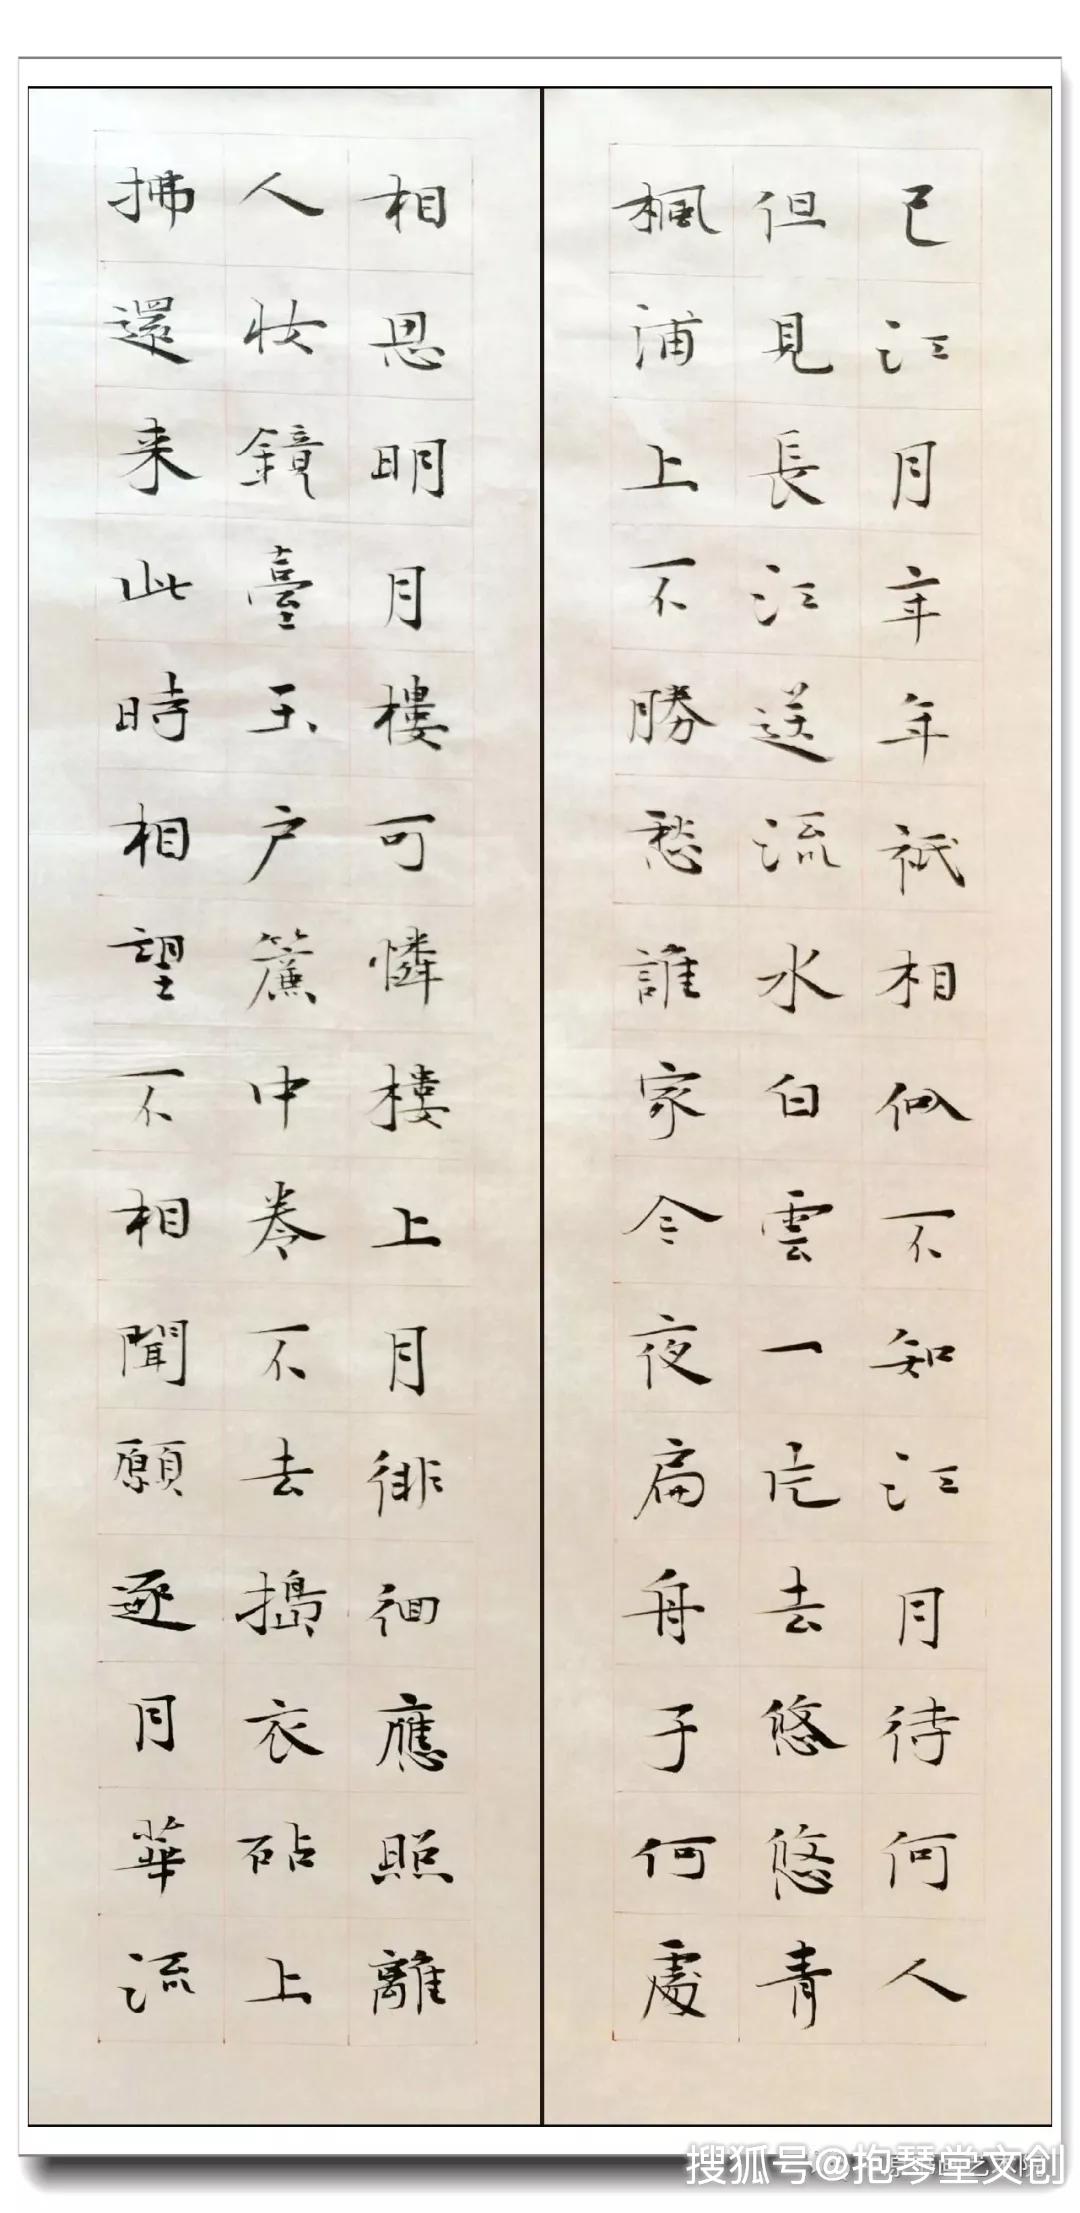 已江月年年祇相似不知江月待何人
但見長江送流水白雲一片去悠悠青
楓浦上不勝愁誰家今夜扁舟子何處
相思明月樓可憐樓上月徘徊應照離
人妝鏡臺玉户簾中卷不去搗衣砧上
拂還来此時相望不相聞願逐月華流
搜狐号@抱琴堂文创